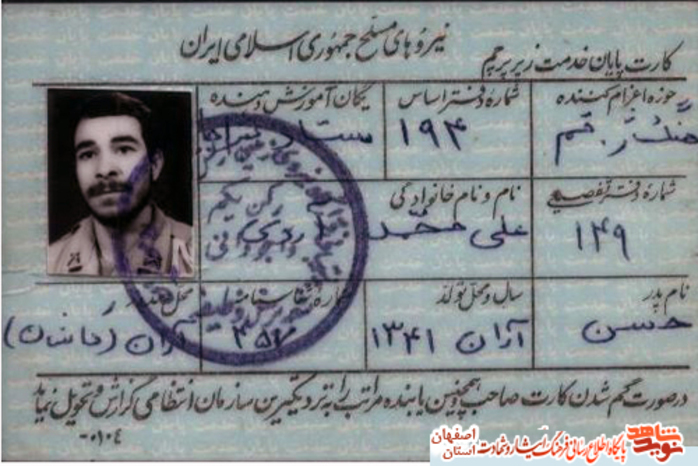 نیروهای مسلح جمهوری اسلامی ایران
کارت پایان خدمت زیر پرچم
حوزه اعزام کننده
قم
شماره دفتر اساس
۱۹۴
یگان آموزش دهنده
ستاد
شماره دفتر تفصیلی
۱۴۹
نام و نام خانوادگی
علی محمد
نام پدر
حسن
سال و محل تولد
۱۳۴۱ آران
شماره شناسنامه
محل صدور
آران (کاشان)
درصورت گم شدن کارت صاحب و همچنین یابنده مراتب را به نزدیکترین سازمان انتظامی گزارش و تحویل نماید
نوید شاهد
پایگاه اطلاع رسانی فرهنگ ایثار و شهادت
استان اصفهان